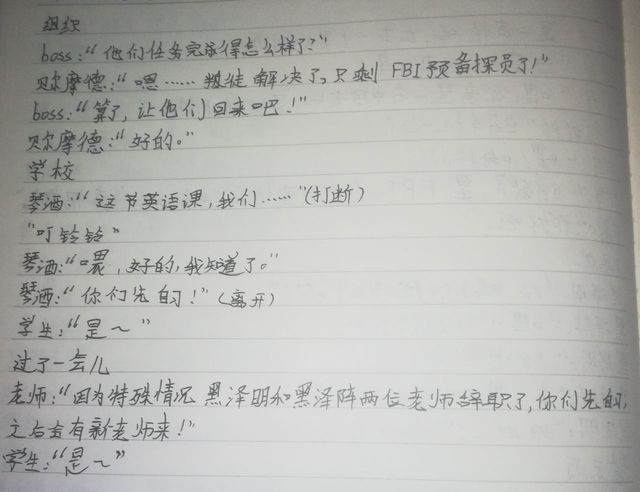 组织
boss:“他们任务完成得怎么样了?”
贝尔摩德:“嗯……叛徒解决了,只剩FBI预备探员了!”
boss:“算了,让他们回来吧!”
贝尔摩德:“好的。”
学校
琴酒:“这节英语课,我们……”(打断)
“叮铃铃”
琴酒:“喂,好的,我知道了。”
琴酒:“你们先自习!”(离开)
学生:“是~”
过了一会儿
老师:“因为特殊情况 黑泽明和黑泽阵两位老师辞职了,你们先自习,
之后会有新老师来!”
学生:“是~”